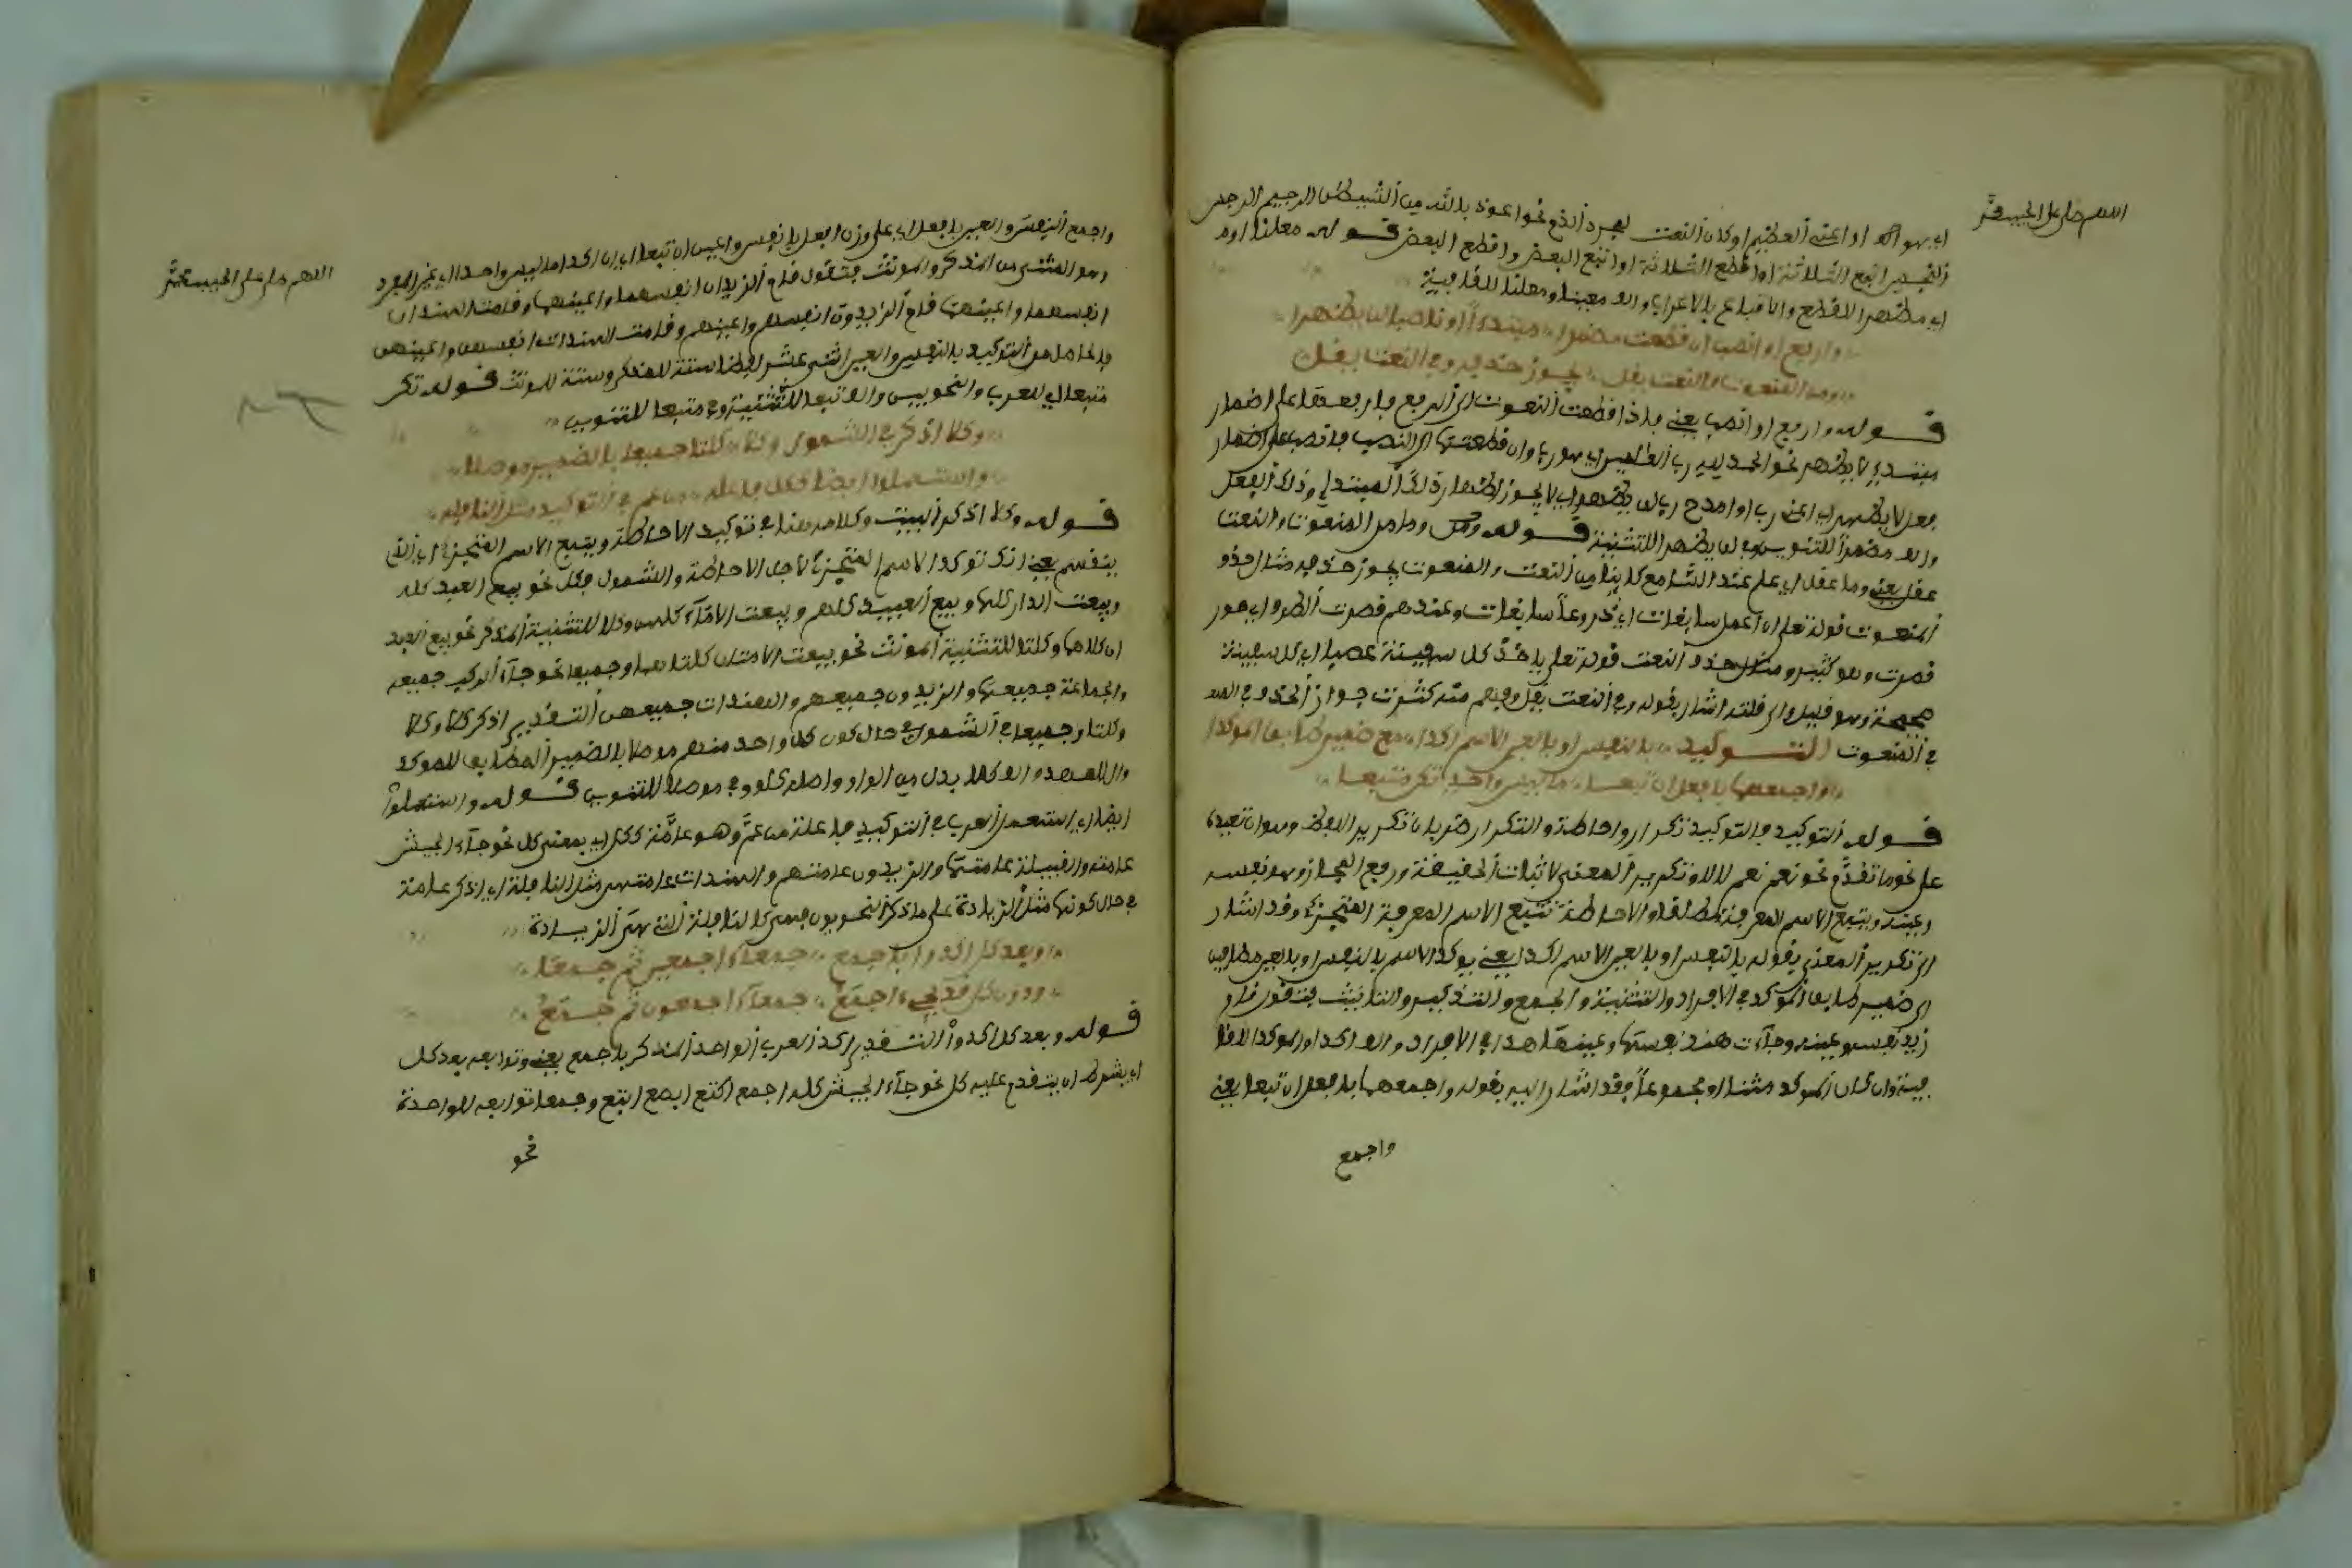 اللهم صل على الحبيب محمد
اي هو اكه او اعني العظيم او كان النعت لمجرد الذم نحو اعوذ بالله من الشيطن الرجيم الرجس
النجس اتبع الثلاثة او اقطع الثلاثة او اتبع البعض واقطع البعض قوله معلنا اوم
اي مظهر الاقطع والاتباع بالاعراب والف معلنا للقافية
وارفع او انصب ان قطعت مضمرا مبتدءا او ناصبا لن يظهرا
وما من المنعوت والنعت عقل يجوز حذفه وفي النعت يقل
قوله وارفع او انصب يعني فاذا قطعت النعوت الى الرفع فارفعها على اضمار
مبتدإ لا يظهر نحو الحمد لله رب العلمين اي هو رب وان قطعتها الى النصب فانصب على اضمار
فعل لا يظهر اي اعني رب او امدح رب لن يظهرا اي لا يجوز اظهار ذلك المبتدا وذلك الفعل
والف مضمرا للتنوين والف لن يظهرا للتثنية قوله وما من المنعوت والنعت
عقل يعني وما عقل اي علم عند السامع كل منهما من النعت والمنعوت يجوز حذفه مثال حذف
المنعوت قوله تعلى ان اعمل سابغات اي دروعا سابغات وعندهم قصرت الطرف اي حور
قصرت وهو كثير ومثال حذف النعت قوله تعلى ياخذ كل سفينة غصبا اي كل سفينة
صحيحة وهو قليل والى قلته اشار بقوله وفي النعت يقل وفهم منه كثرت جواز الحذف
في المنعوت التوكيد بالنفس او بالعين الاسم اكدا مع ضمير طابق المؤكدا
واجمعهما بافعل ان تبعا ما ليس واحدا تكن متبعا
قوله التوكيد والتوكيد تكرار واحاطة والتكرار ضربان تكرير اللفظ وهو ان تعيده
على نحو ما تقدم نحو نعم نعم لا لا وتكرير المعنى لاثبات الحقيقة ورفع المجاز وهو نفسه
وعينه ويتبع الاسم المعرفة مطلقا والاحاطة تتبع الاسم المعرفة المتجزئ وقد اشار
الى تكرير المعنى بقوله بالنفس او بالعين الاسم اكدا يعني يوكد الاسم بالنفس او بالعين مضافين
الى ضمير طابق الموكد في الافراد والتثنية والجمع والتذكير والتانيث فتقول قام
زيد نفسه وعينه وجاءت هند نفسها وعينها هذا في الافراد والف اكدا والموكدا للاطلا
فية وان كان الموكد مثنا او مجموعا فقد اشار اليه بقوله واجمعهما بافعل ان تبعا يعني
واجمع
اللهم صل على الحبيب محمد
واجمع النفس والعين بافعل اي على وزن افعل بانفس واعين ان تبعا اي ان اكدا ما ليس واحدا اي غير المفرد
وهو المثنى من المذكر والمونث فتقول قام الزيدان انفسهما واعينهما وقامت الهندان
انفسهما واعينهما قام الزيدون انفسهم واعينهم وقامت الهندات انفسهن واعينهن
فالحاصل من التوكيد بالنفس والعين اثنى عشر لفظا ستة للمذكر وستة للمونث قوله تكن
متبعا اي للعرب والنحويين والف تبعا للتثنية وفي متبعا للتنوين
وكلا اذكر في الشمول وكلا كلتا جميعا بالضمير موصلا
واستعملوا ايضا ككل فاعله من عم في التوكيد مثل النافله
قوله وكلا اذكر البيت وكلامه هنا في توكيد الاحاطة ويتبع الاسم المتجزئ اي الذي
ينقسم يعني انك توكد الاسم المتجزئ لاجل الاحاطة والشمول بكل نحو بيع العبد كله
وبيعت الدار كلها وبيع العبيد كلهم وبيعت الاماء كلهن وكلا للتثنية المذكر نحو بيع العبد
ان كلاهما وكلتا للتثنية المونث نحو بيعت الامتان كلتاهما وجميعا نحو جاء الركب جميعه
والجماعة جميعها والزيدون جميعهم والهندات جميعهن التقدير اذكر كلا وكلا
وكلتا وجميعا في الشمول في حال كون كل واحد منهم موصلا بالضمير المطابق للموكد
والف كلا بدل من الواو واصله كلو وفي موصلا للتنوين قوله واستعملوا
ايضا اي استعمل العرب في التوكيد فاعلة من عم وهو عامة ككل اي بمعنى كل نحو جاء الجيش
عامته والقبيلة عامتها والزيدون عامتهم والهندات عامتهن مثل النافلة اي اذكر عامة
في حال كونها مثل الزيادة على ما ذكر النحويون فهي كالنافلة التي هي الزيادة
وبعد كل اكدوا باجمع جمعاء اجمعين ثم جمعا
ودون كل قد يجيء اجمع جمعاء اجمعون ثم جمع
قوله وبعد كل اكدوا التقدير اكد العرب الواحد المذكر باجمع يعني وتوابعه بعد كل
اي بشرط ان يتقدم عليه كل نحو جاء الجيش كله اجمع اكتع ابصع ابتع وجمعا توابعه للواحدة
نحو